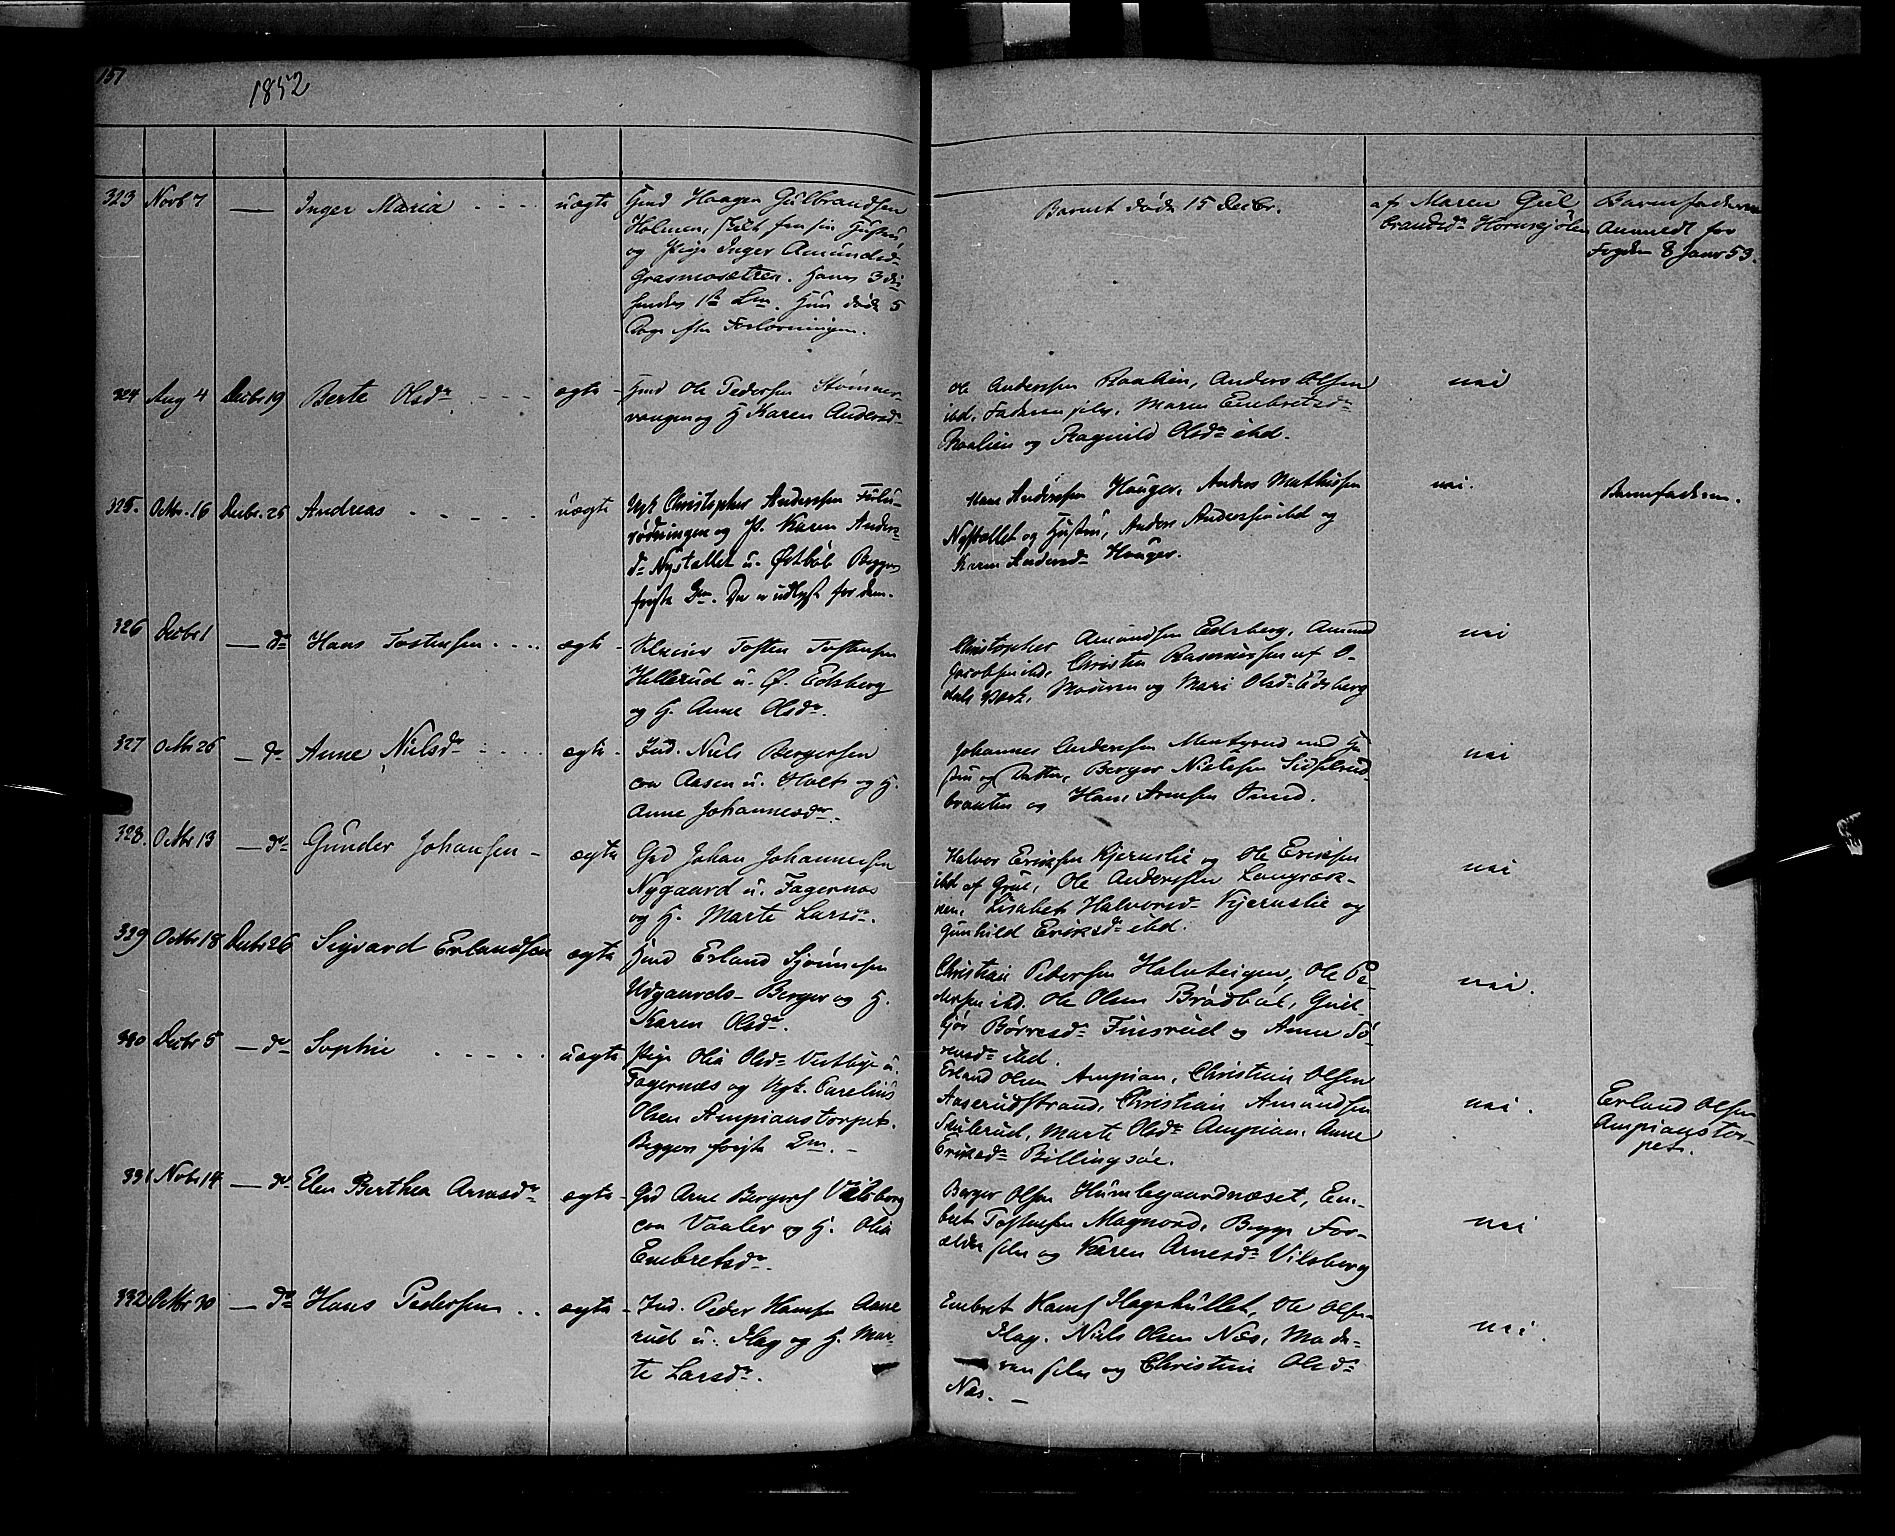 151
1852
323 Novb 7 — Inger Maria - - - - uægte Gmd Haagen Gulbrandsen
Holmen, skilt fra sin Hustru,
og Pige Inger Amundsd
Græsmosætren. Hans 3die
hendes 1ste Lm. Hun døde 5
Dage efter Forløsningen.
Barnet døde 15 Decbr.
af Maren Gul
brandsd Hornsjølen
Barnefaderen
Anmeldt for
Fogden 8 Janr 53.
324 Aug 4 Decbr 19 Berte Olsdr - - - ægte - Gmd Ole Pedersen Stømner
vangen og H Karen Andersd
Ole Andersen Raalien, Anders Olsen
ibd. Faderen selv, Maren Embretsdr
Raalien og Ragnild Olsdr ibd.
nei
325. Octbr. 16 Decbr. 25 Andreas - - - - - uægte Ugk Christopher Andersen Furu
rødningen og P. Karen Anders
dr Nystallet u. Østbøl Begges
første Lm. Der er udlyst for dem.
Hans Andersen Hauger, Anders Mathisen
Nystallet og Hustru, Anders Andersen ibd og
Karen Andersd Hauger.
nei.
Barnefaderen.
326 Decbr 1 — do Hans Tostensen . . . . ægte - Tostensen
Hellerud u. Ø. Edsberg
og H. Anne Olsdr.
Christopher Amundsen Edsberg, Amund
Jacobsen ibd, Christen Rasmussen af O-
dals Værk, Moderen og Mari Olsd Edsberg
nei
327 Octbr 26 — do Anne Nielsdr - . . . . ægte - Ind. Niels Bergersen
Aasen u. Holt og H.
Anne Johannesdr.
Johannes Andersen med Hu
stru og Datter, Berger Nielsen
braaten og Hans Arnesen
nei
328. Octbr 13 — do Gunder Johansen - ægte Gmd Johan Johannesen
Nygaard u. Fagernæs
og H. Marte Larsdr.
Halvor Eriksen Kjernslie og Ole Eriksen
ibd af Grue, Ole Andersen Langræk-
ken, Lisabet Halvorsd Kjernslie og
Gunhild Eriksdr ibd.
nei
329 Octbr 18 Decbr 26 Sigvard Erlandsen ægte Gmd Erland
Udgaards- Berger og H.
Karen Olsdr.
Christian Pedersen Halvteigen, Ole Pe-
dersen ibd. Ole Olsen Brødbøl, Gul-
Børresdr Finsrud og Anne Sø-
rensdr ibd.
nei.
330 Decbr 5 — do Sophie . - - - - . uægte Pige Olia Olsdr Vestbye u.
Fagernæs og Ugk. Carelius
Olsen Ampianstorpet.
Begges første Lm. -
Erland Olsen Ampian, Christian Olsen
Aaserudstrand, Christian Amundsen
Skulerud, Marte Olsdr Ampian, Anne
Eriksdr Billingsøe.
nei.
Erland Olsen
Ampianstor-
pet.
331 Nobr 14 — do Elen Berthea Arnesdr ægte - Gmd Arne Bergers Vilsberg
Vaaler og H. Olia
Embretsdr.
Berger Olsen Humlegaardnæset, Em-
bret Tostensen Magnord, Begge For-
ældre selv og Karen Arnesdr Vilsberg
nei
332 Octbr 30 — do Hans Pedersen . . ægte - Ind. Peder Hansen Aane
rud u. Hag og H. Mar-
te Larsdr.
Embret Hans Hagahullet, Ole Olsen
Hag. Niels Olsen Næs, Mode-
ren selv og Christine Olsdr
Næs. -
nei.